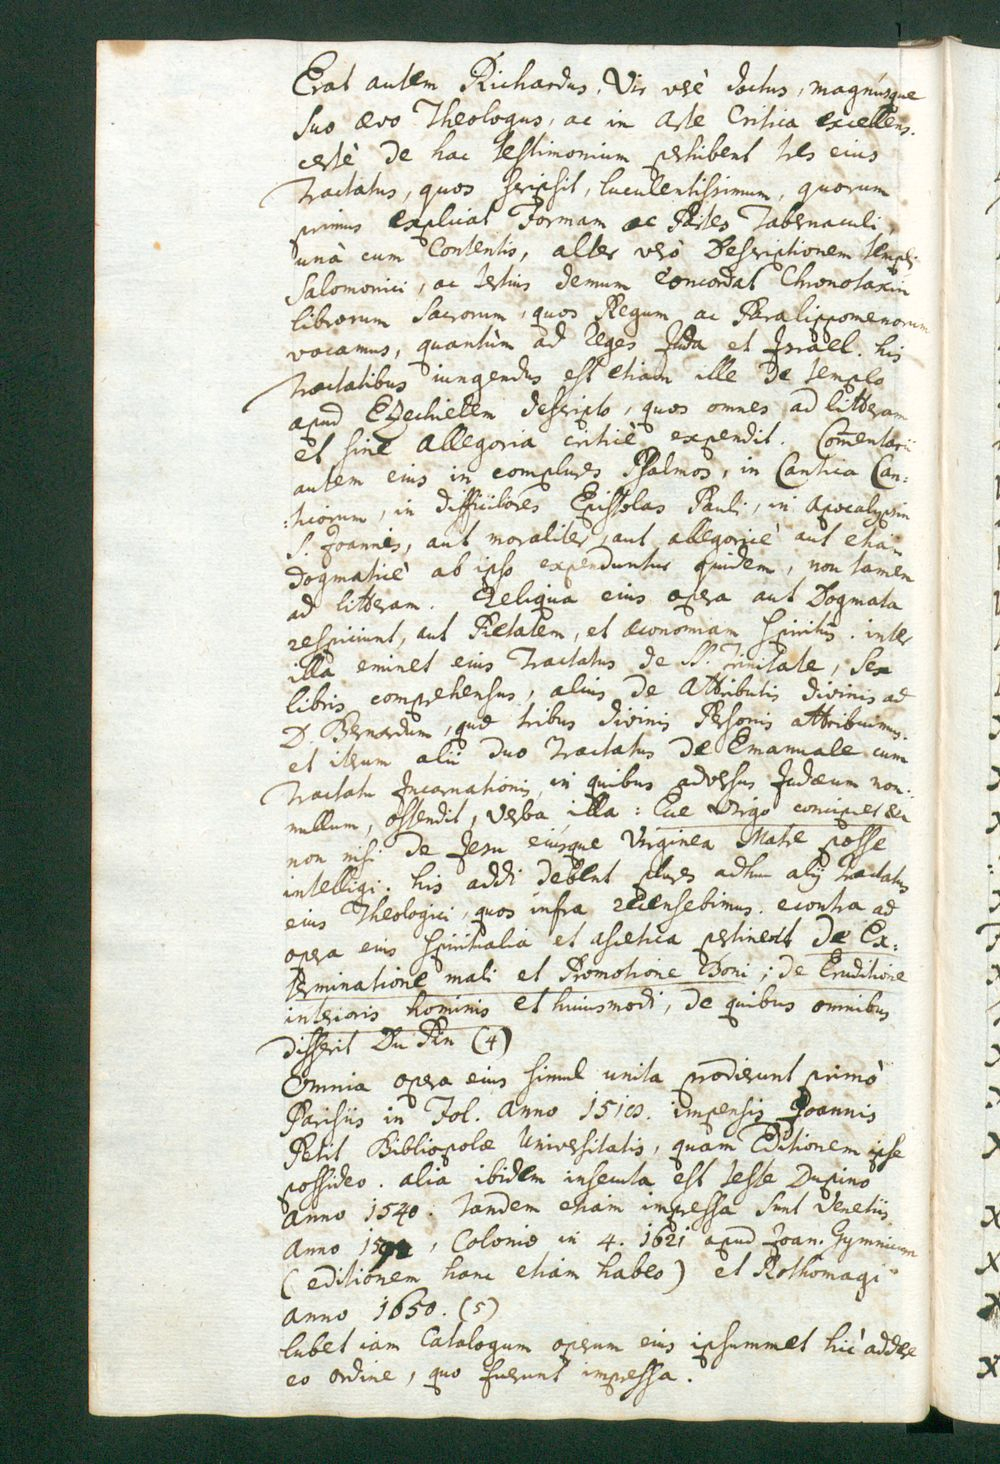 Erat autem Richardus, Vir verè doctus, magnúsque
suo ævo Theologus, ac in Arte Critica excellens.
certè de hac testimonium perhibent tres eius
Tractatus, quos scripsit, luculentissimum, quorum
primus explicat Formam ac Partes Tabernaculi,
unà cum Contentis, alter verò Descriptionem templi
Salomonici, ac tertius demum concordat Chronotaxin
librorum Sacrorum, quos Regum ac Paralippomenorum
vocamus, quantùm ad Reges Juda et Israel. his
Tractatibus iungendus est etiam ille de templo
apud Ezechielem descripto, quos omnes ad litteram
et sine Allegoria criticè expendit. Com̄entarii
autem eius in complures Psalmos, in Cantica Can:
:ticorum, in difficiliores Epistolas Pauli, in Apocalypsin
S. Joannis, aut moraliter, aut allegoricè aut etiam
dogmaticè ab ipso expenduntur quidem, non tamen
ad litteram. Reliqua eius opera aut Dogmata
respiciunt, aut Pietatem, et œconomiam Spiritûs. inter
illa eminet eius Tractatus de SS. Trinitate, sex
libris comprehensus, alius de Attributis divinis ad
D. Bernardum, quæ tribus divinis Personis attribuimus.
et iterum alii duo Tractatus de Emanuale cum
Tractatu Incarnationis, in quibus adversus Judæum non:
nullum, ostendit, verba illa: Ecce Virgo concipiet &a
non nisi de Jesu eiúsque Virginea Matre posse
intelligi. his addi debent plures adhuc alij Tractatus
eius Theologici, quos infra recensebimus. econtra ad
opera eius spiritualia et ascetica pertinent De Ex:
terminatione mali et Promotione Boni; de Eruditione
interioris hominis et huiusmodi, de quibus omnibus
disserit Du Pin (4)
Omnia opera eius simul unita prodierunt primò
Parisiis in Fol. Anno 1518. impensis Joannis
Petit Bibliopolæ Universitatis, quam Editionem ipse
possideo. alia ibidem insecuta est teste Dupino
Anno 1540. tandem etiam impressa sunt Venetiis
Anno, Coloniæ in 4. 1621 apud Joan. Gymnicum
(editionem hanc etiam habeo) et Rothomagi
Anno 1650. (5)
lubet iam Catalogum operum eius ipsummet hîc addere
eo ordine, quo fuerunt impressa.